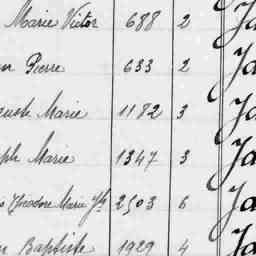 Marie Victor 688 2 Ja
Pierre 633 2 Ja
Marie 1182 3 Ja
Marie 1347 3 Ja
Théodore Marie 2503 6 Ja
Baptiste 1929 4 Ja